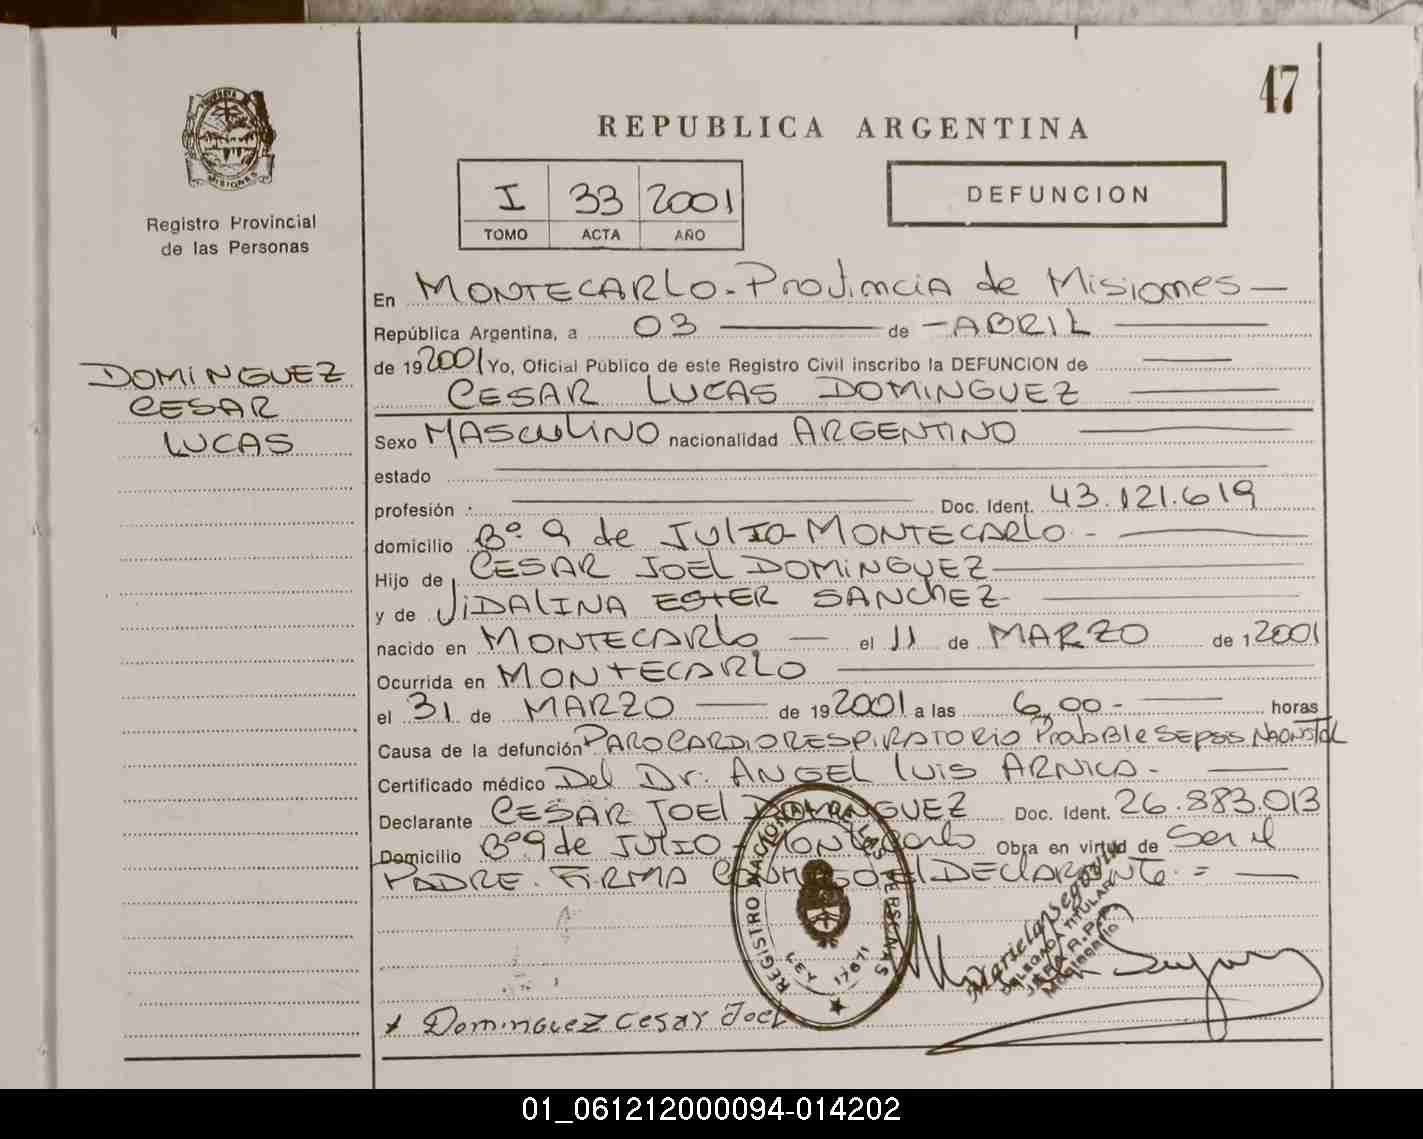 47
REPUBLICA ARGENTINA
MISIONES
Registro Provincial
de las Personas
I 33 2001
TOMO ACTA AÑO
DEFUNCION
DOMINGUEZ
CESAR
LUCAS
En MONTECARLO - Provincia de Misiones
República Argentina, a 03 de ABRIL
de 192001 Yo, Oficial Público de este Registro Civil inscribo la DEFUNCION de
CESAR LUCAS DOMINGUEZ
Sexo MASCULINO nacionalidad ARGENTINO
estado
profesión : Doc. Ident. 43.121.619
domicilio Bº 9 de JULIO - MONTECARLO -
Hijo de CESAR JOEL DOMINGUEZ
y de ViDALINA ESTER SANCHEZ
nacido en MONTECARLO el 11 de MARZO de 12001
Ocurrida en MONTECARLO
el 31 de MARZO de 192001 a las 6,00 - horas
Causa de la defunción PAROCARDIORESPIRATORIO ProbABle SEPSIS
Certificado médico Del Dr. ANGEL LUIS ARNICA -
Declarante CESAR JOEL DOMINGUEZ Doc. Ident. 26.883.013
Domicilio Bº 9 de JULIO - MONTECARLO Obra en virtud de Ser el
PADRE. FIRMA CONMIGO El DEClARANTE. =
REGISTRO NACIONAL DE LAS PERSONAS
17671
DELEGADA TITULAR
x DominGUEZ Cesar Joel
01_061212000094-014202